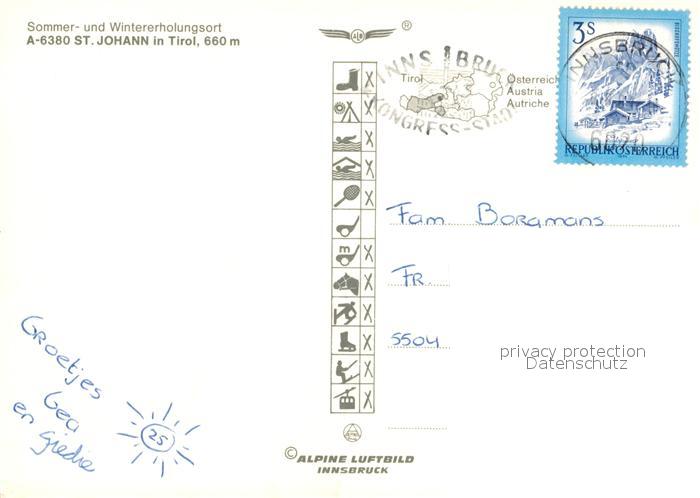 Sommer- und Wintererholungsort
A-6380 ST. JOHANN in Tirol, 660 m
®
INNSBRUCK
Tirol
Österreich
Austria
Autriche
KONGRESS-STADT
INNSBRUCK
3S
6020
REPUBLIK ÖSTERREICH
m
Fam. Borgmans
FR.
5504
privacy protection
Datenschutz
Groetjes
Gea
en
25
© ALPINE LUFTBILD
INNSBRUCK